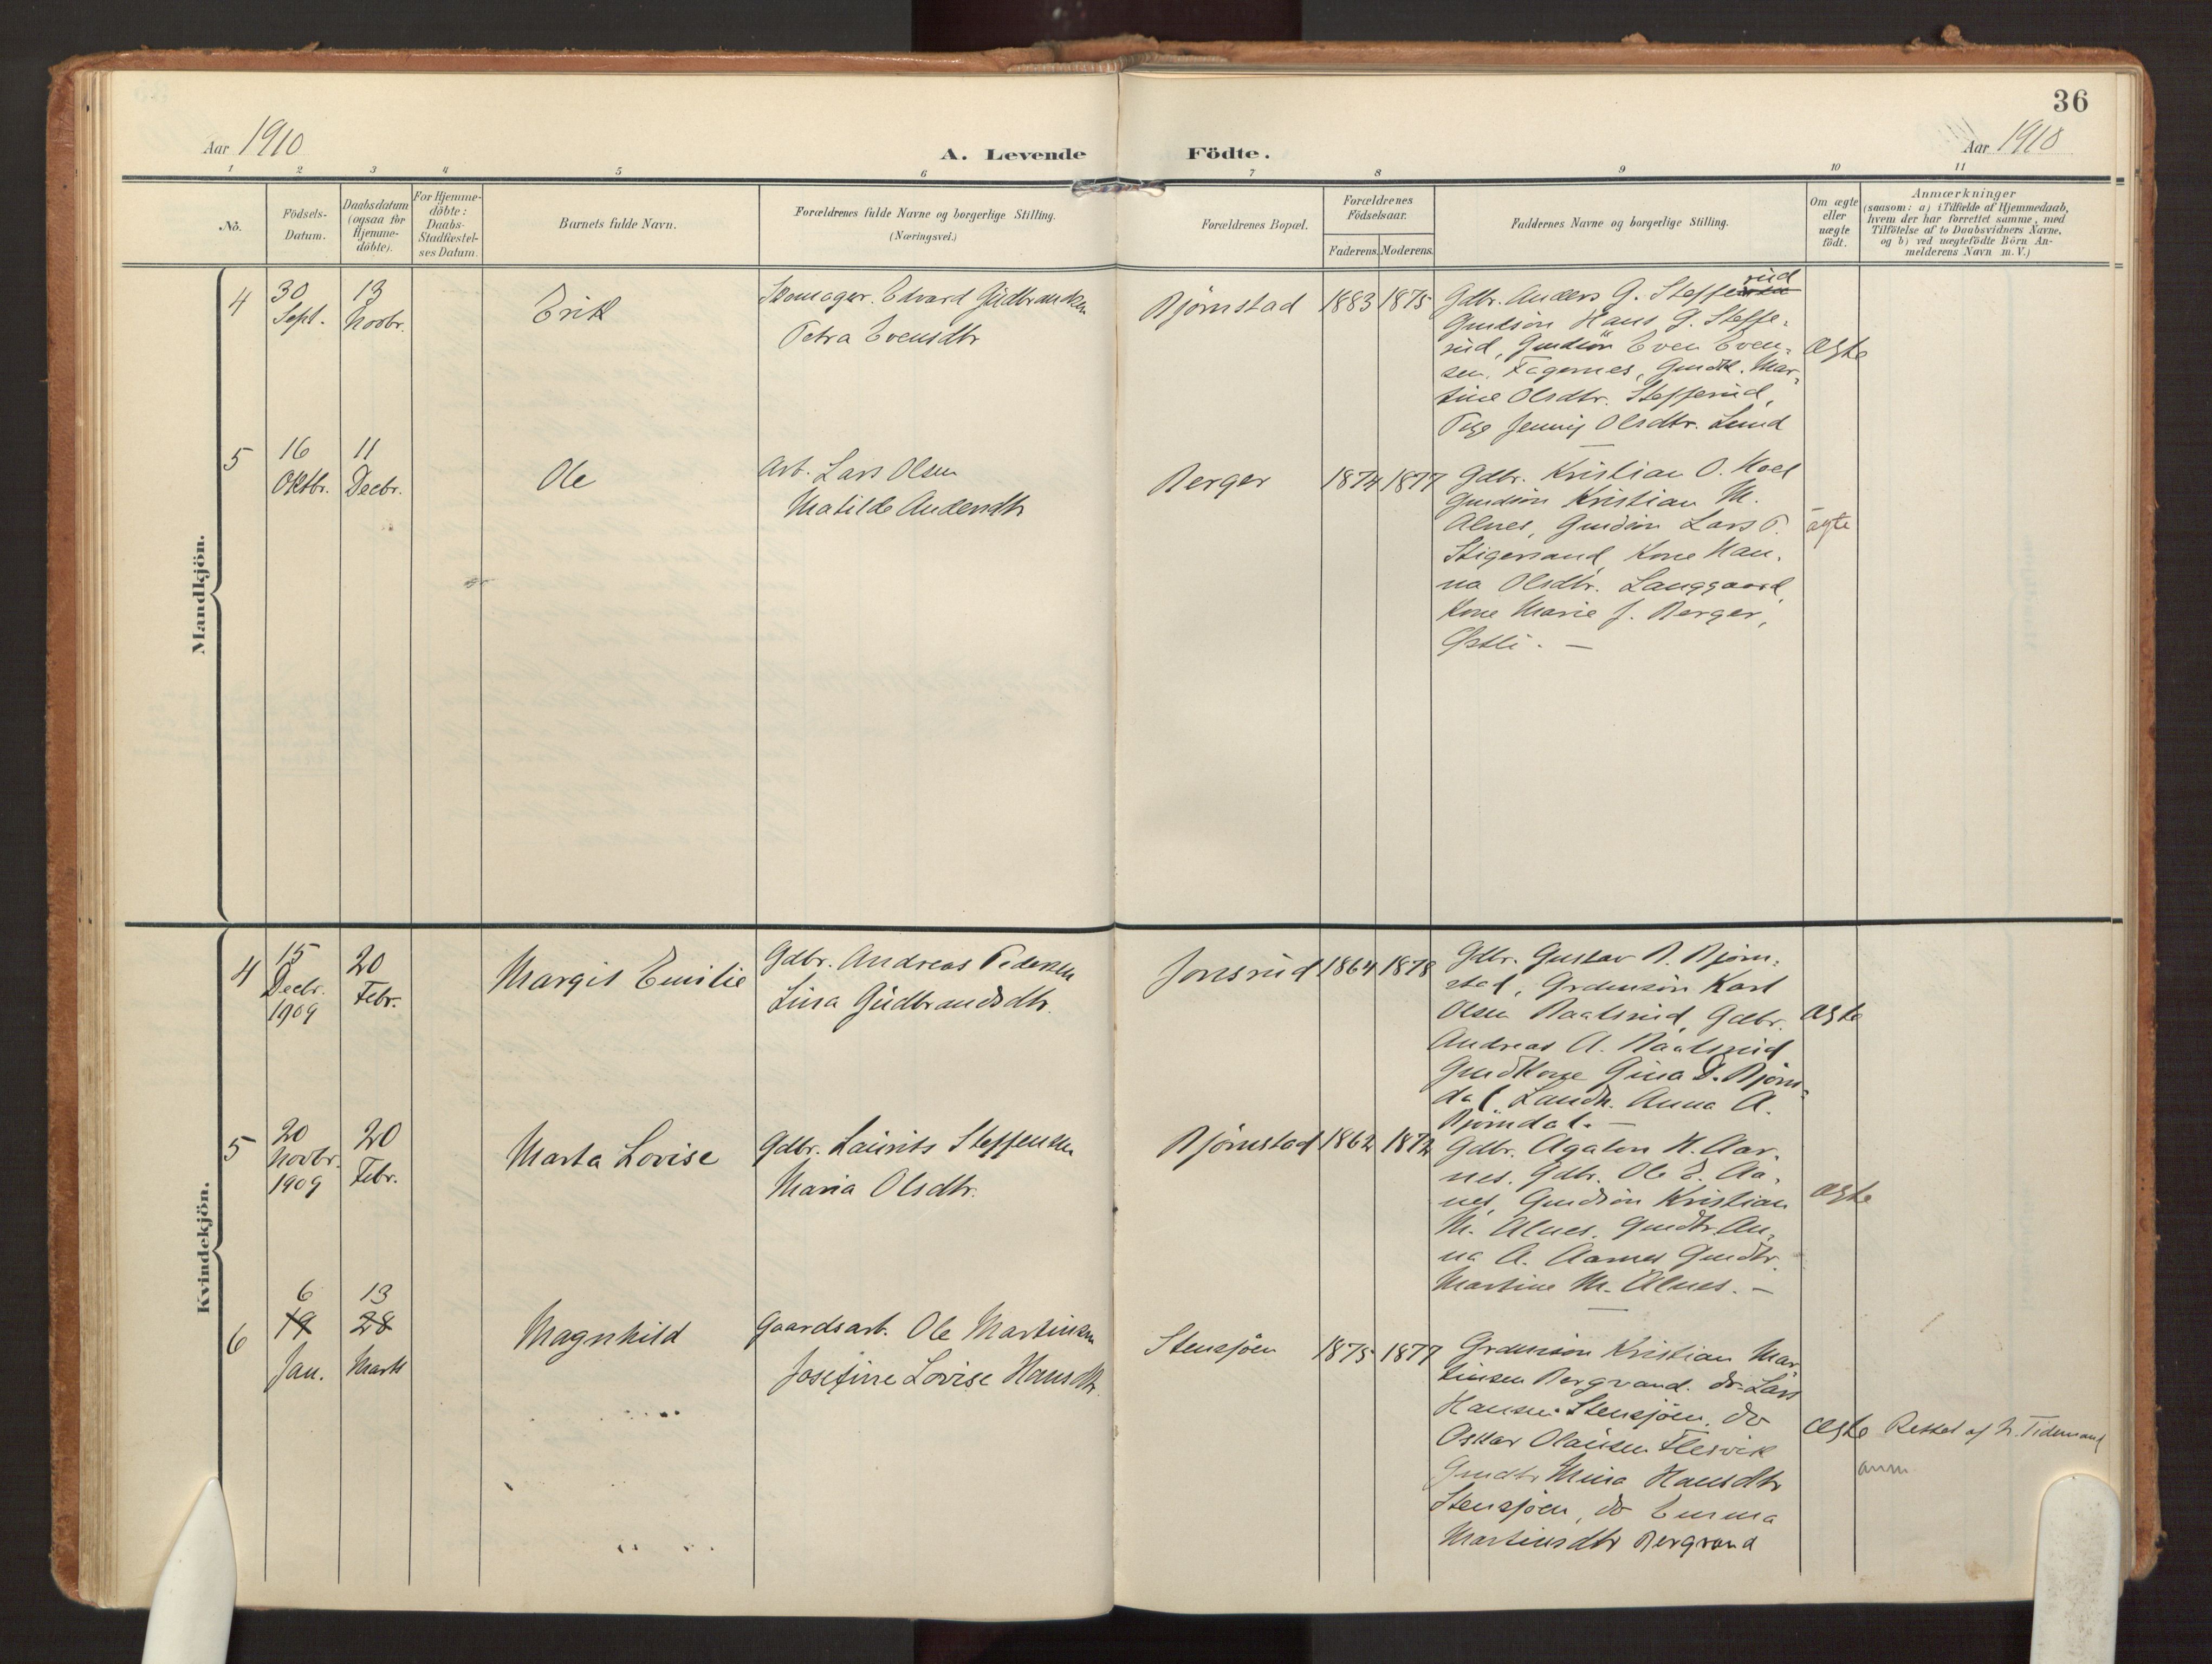 36
Aar 1910
A. Levende Födte.
Aar 1910
1 2 3 4 5 6 7 8 9 10 11
No.
Födsels-Datum.
Daabsdatum (ogsaa for Hjemme-döbte).
For Hjemme-döbte: Daabs-Stadfæstel-ses Datum.
Barnets fulde Navn.
Forældrenes fulde Navne og borgerlige Stilling.
(Næringsvei.)
Forældrenes Bopæl.
Forældrenes Födselsaar.
Faderens. Moderens.
Faddernes Navne og borgerlige Stilling.
Om ægte eller uægte födt.
Anmærkninger
(saasom: a) i Tilfælde af Hjemmedaab,
hvem der har forrettet samme, med
Tilföielse af to Daabsvidners Navne,
og b) ved uægtefödte Börn An-
melderens Navn m. V.)
Mandkjön.
4
30 Sept.
13 Novbr.
Erik
Skomager. Edvard Gudbrandsen
Petra Evensdtr
Bjørnstad
1883 1875
Gdbr. Anders G. Stefferud
Gmdsön Hans G. Steffe-
rud, Gmdsön Even Even-
sen Fagernes, Gmdk. Mar-
tine Olsdtr. Stefferud,
Pige Jenny Olsdtr. Lund
ægte
5
16 Oktbr.
11 Decbr.
Ole
Arb. Lars Olsen
Matilde Andersdtr
Berger
1874 1877
Gdbr. Kristian O. Hoel
Gmdsön Kristian M.
Alnes, Gmdsön Lars P.
Stigersand, Kone Han-
na Olsdtr. Langgaard,
Kone Marie J. Berger,
Østli. —
ægte
Kvindekjön.
4
15 Decbr. 1909
20 Febr.
Margit Emilie
Gdbr. Andreas Pedersen
Lina Gudbrandsdtr.
Jonsrud
1864 1878
Gdbr. Gustav B. Bjørn-
stad, Grdmsön Karl
Olsen Raalsrud, Gdbr.
Andreas A. Raalsrud
Gmdkone Gina D. Bjørn-
dal Landh. Anna A.
Bjørndal. —
ægte
5
20 Novbr. 1909
20 Febr.
Marta Lovise
Gdbr. Laurits Steffensen
Maria Olsdtr.
Bjørnstad
1862 1872
Gdbr. Agaton H. Aar-
nes. Gdbr. Ole E. Aa-
nes, Gmdsön Kristian
M. Alnes. Gmdtr. An-
na A. Aarnes Gmdtr.
Martine M. Alnes. —
ægte
6
6
19 Jan.
13
28 Marts
Magnhild
Gaardsarb. Ole Martinsen
Josefine Lovise Hansdtr.
Stensjöen
1875 1877
Grdmsön Kristian Mar
tinsen Bergvand. do Lars
Hansen Stensjöen, do
Oskar Olausen Flesvik
Gmdtr Mina Hansdtr
Stensjöen, do Emma
Martinsdtr Bergvand
ægte
Rettet af N. Tidemand
anm